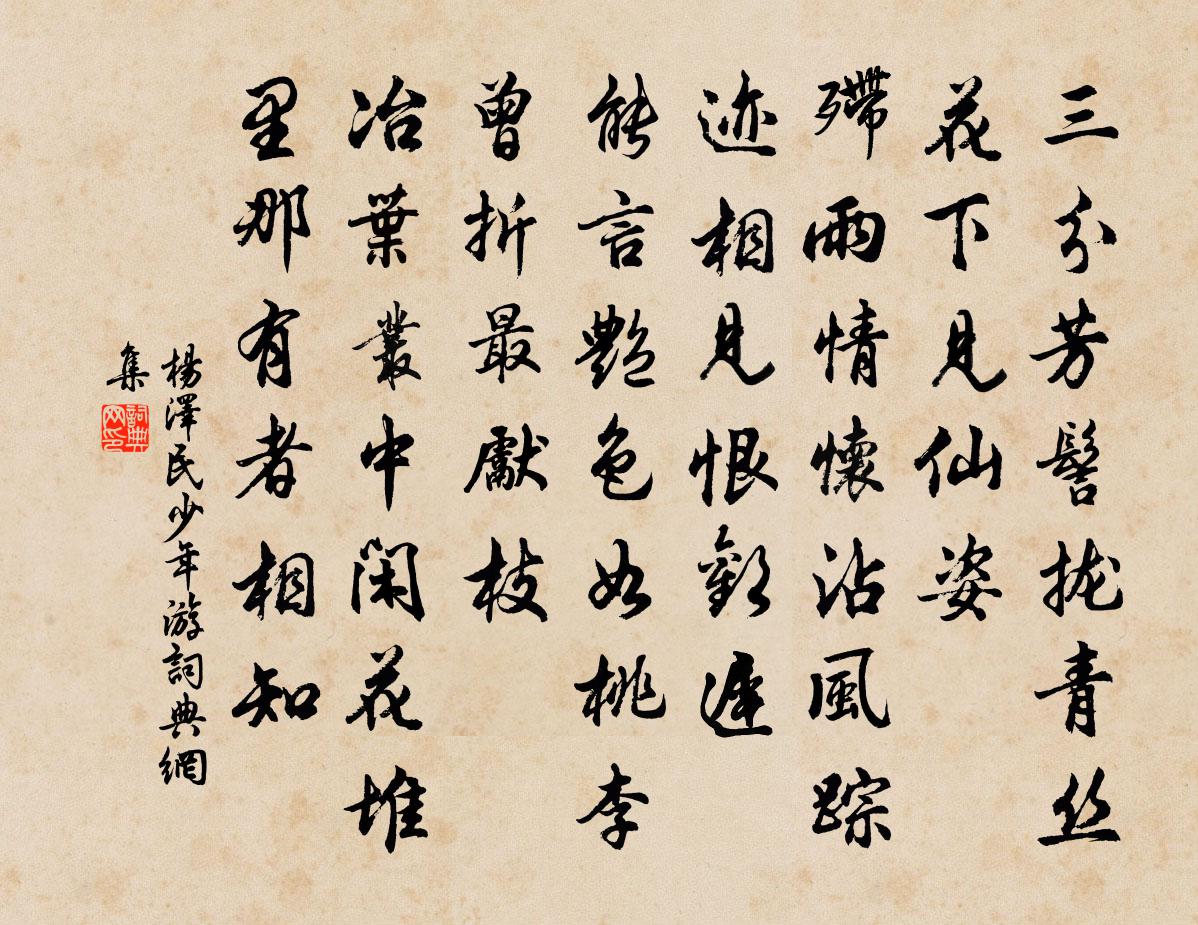 三分芳髻拢青丝
花下見仙姿
殢雨情懷沾風踪
迹相見恨歡遲
能言艷色如桃李
曾折最獻枝
冶葉叢中閑花堆
里那有者相知
楊澤民少年游詞典網
集
詞典网印